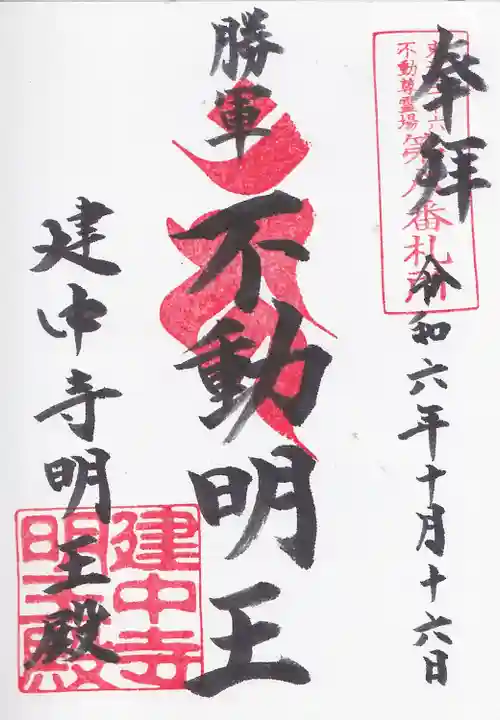 奉拝
令和六年十月十六日
不動尊霊場
番札所
勝軍
不動明王
建中寺明王殿
建中寺
明王殿